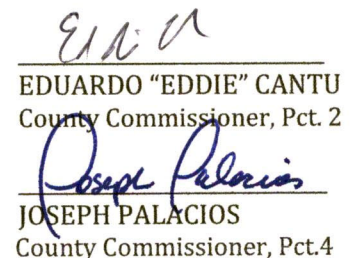 EDUARDO “EDDIE” CANTU
County Commissioner, Pct. 2
Joseph Palacios
JOSEPH PALACIOS
County Commissioner, Pct.4